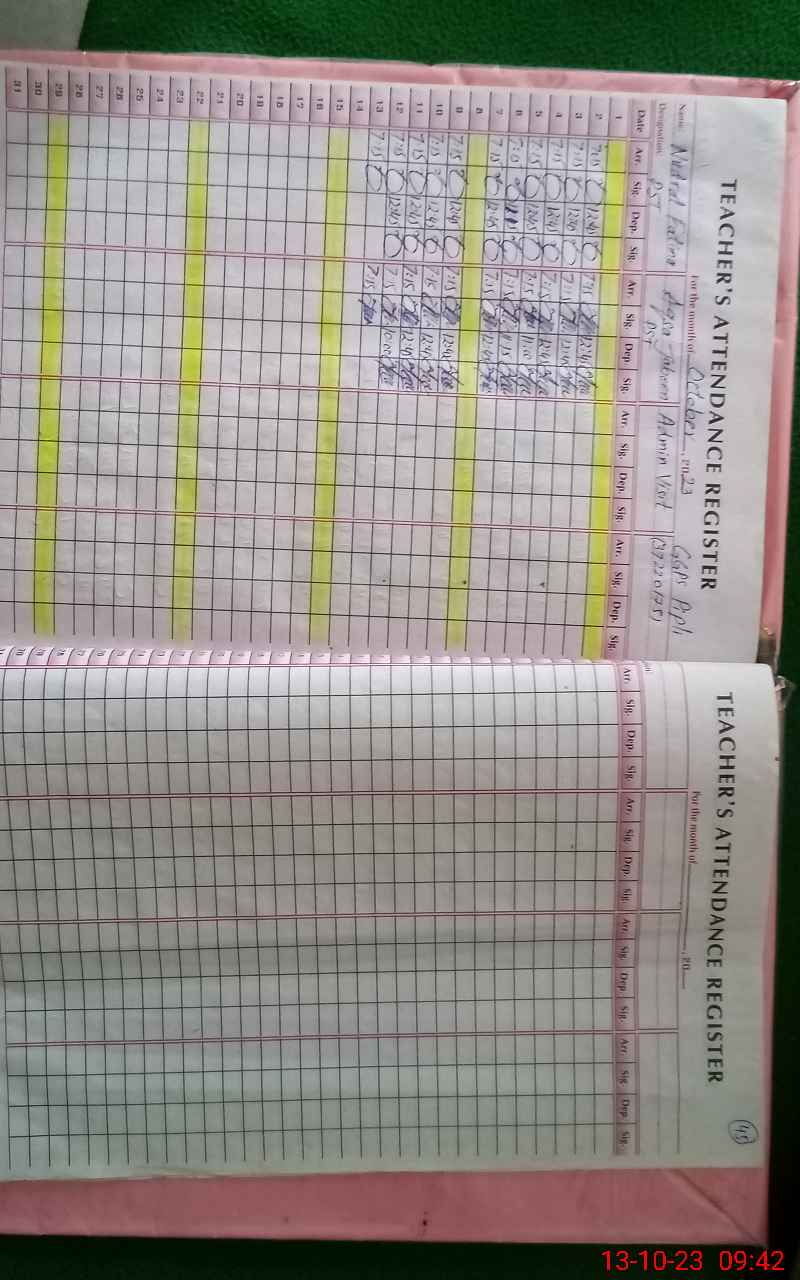 TEACHER'S ATTENDANCE REGISTER
For the month of October, 2023 GGPS Piplı
Name: Nudrat Fatima Aqsa Jabeen Admin Visit (39220175)
Designation PST PST
Date Arr. Sig. Dep. Sig. Arr. Sig. Dep. Sig. Arr. Sig. Dep. Sig. Arr. Sig. Dep. Sig.
1
2 7:15 12:45 7:15 12:45
3 7:15 12:45 7:15 12:45
4 7:15 12:45 7:15 12:45
5 7:15 12:45 7:15 11:00
6 7:15 7:15 11:15
7 7:15 12:45 7:15 12:45
8
9 7:15 12:45 7:15 12:45
10 7:15 12:45 7:15 12:45
11 7:15 12:45 7:15 12:45
12 7:15 12:45 7:15 10:00
13 7:15 7:15
14
15
16
17
18
19
20
21
22
23
24
25
26
27
28
29
30
31
TEACHER'S ATTENDANCE REGISTER
45
For the month of , 20
Arr. Sig. Dep. Sig. Arr. Sig. Dep. Sig. Arr. Sig. Dep. Sig. Arr. Sig. Dep. Sig.
13-10-23 09:42